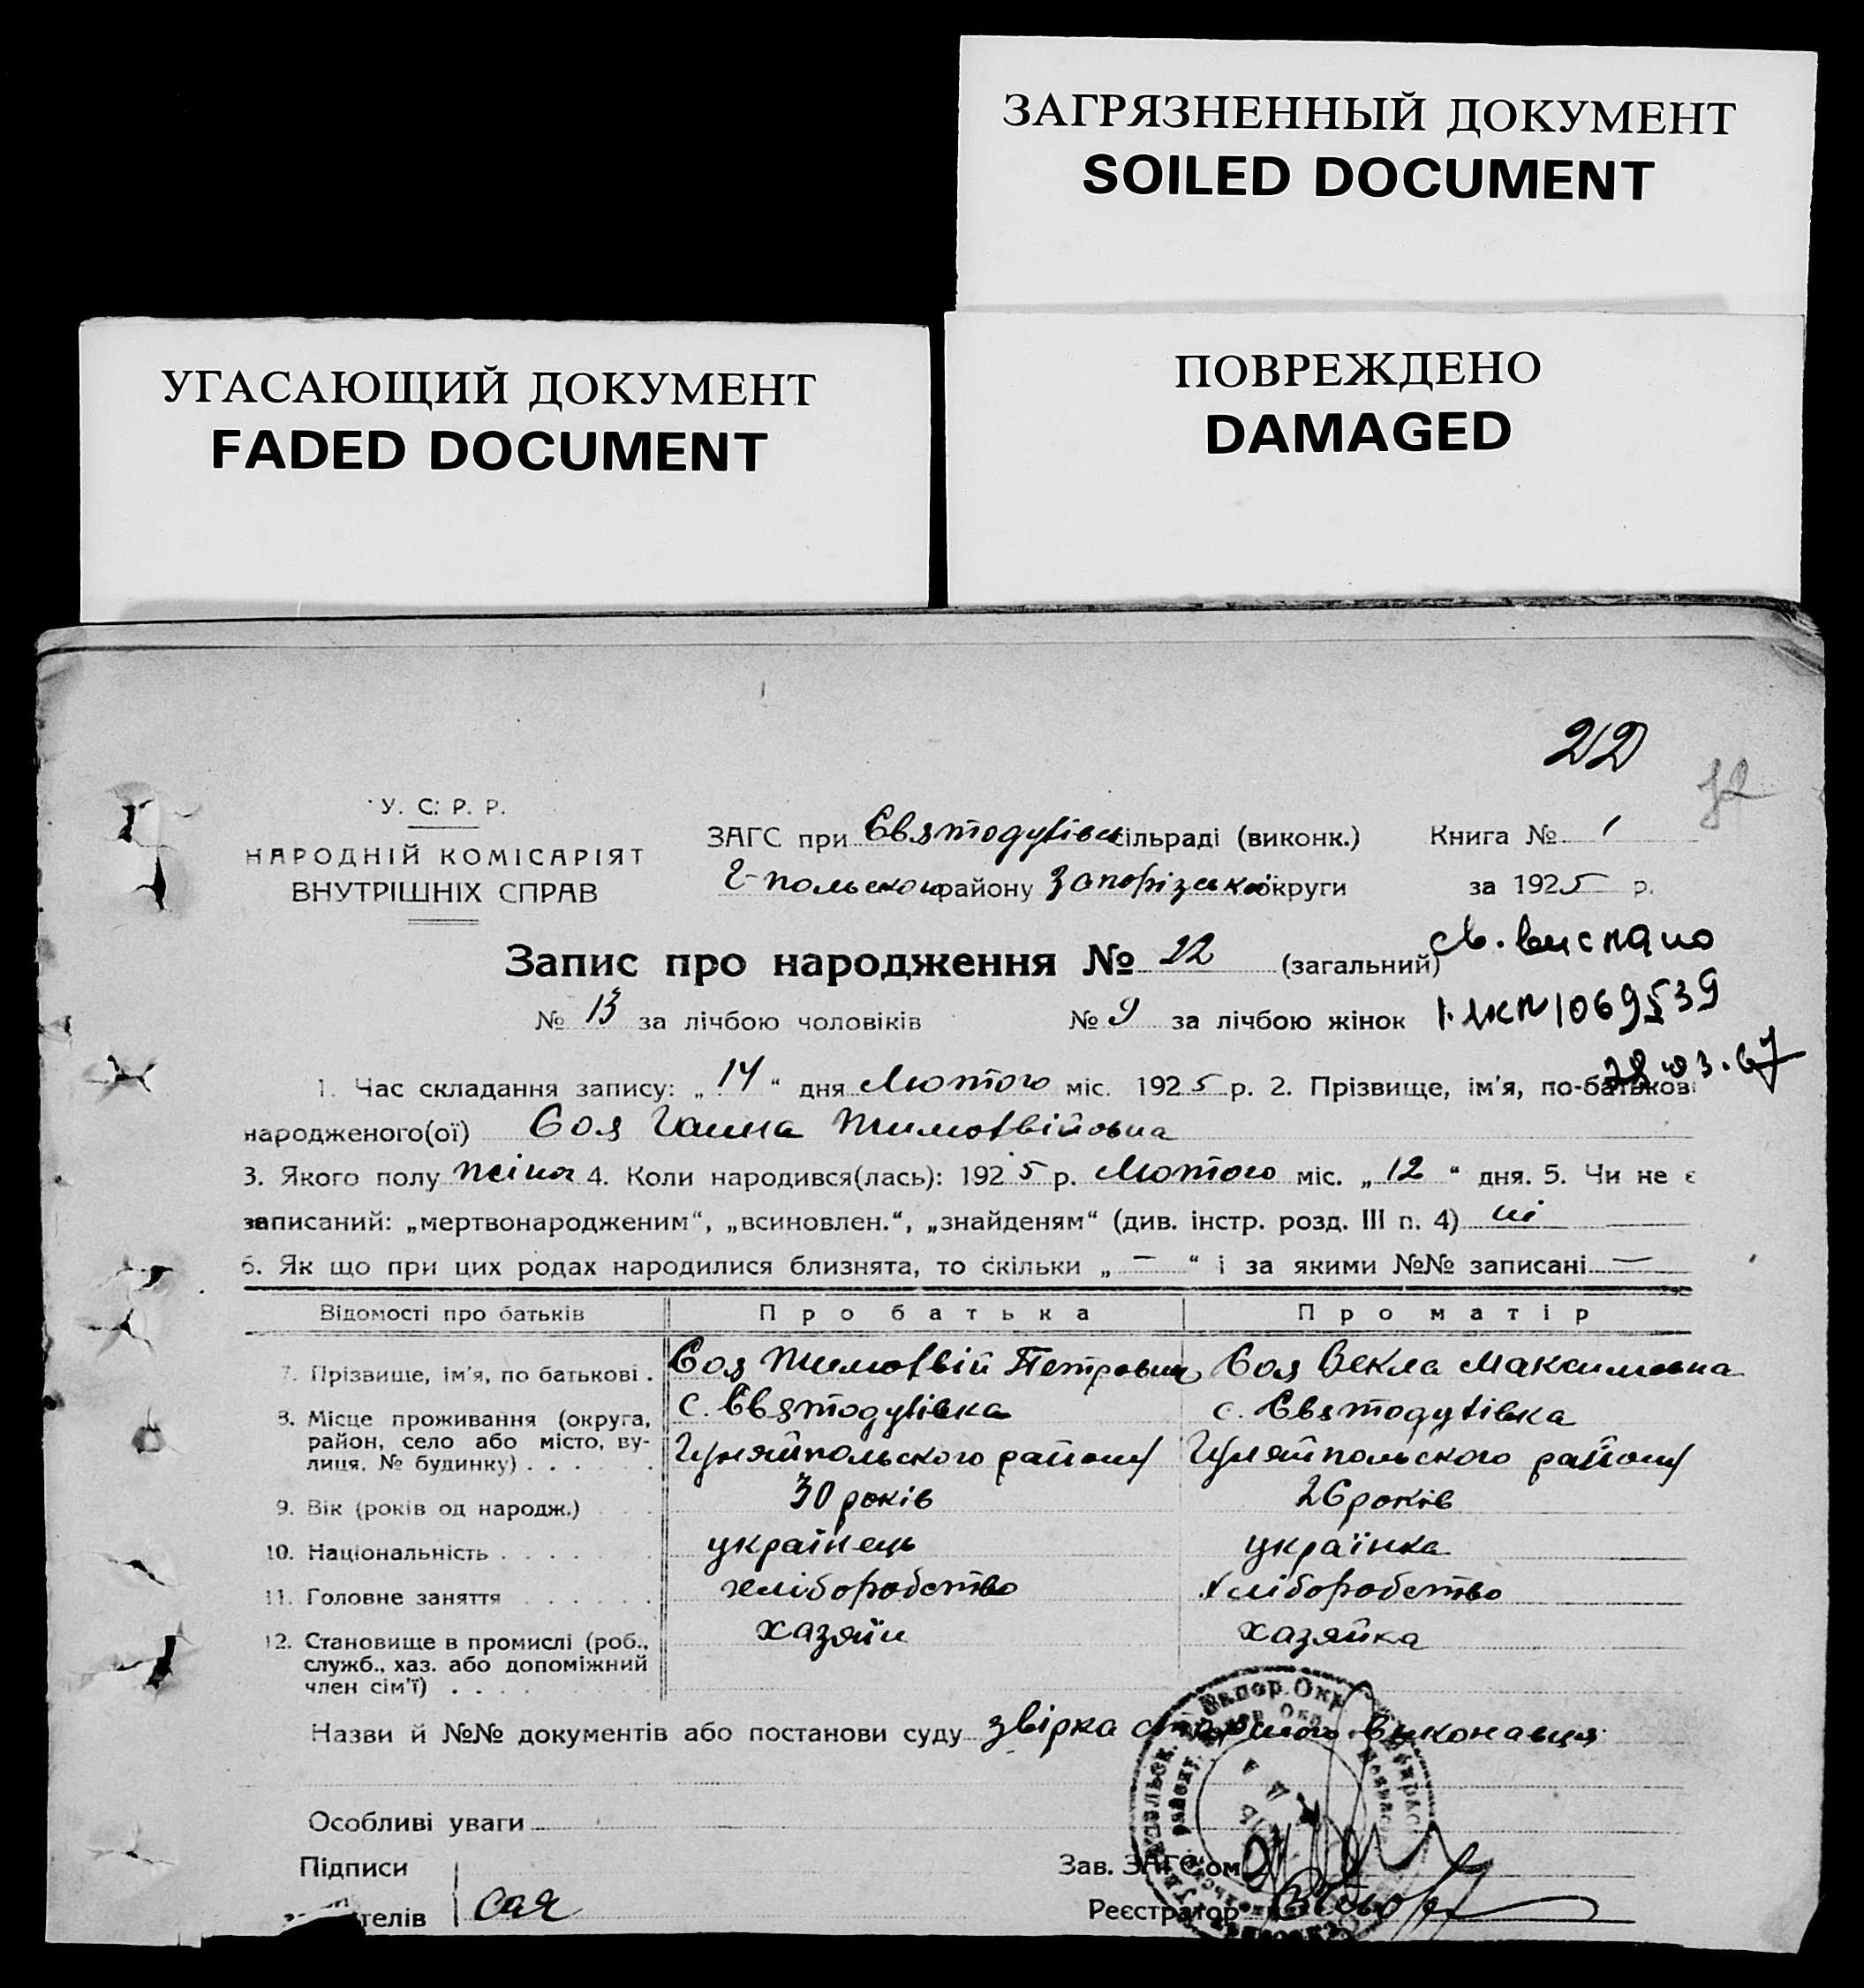 ЗАГРЯЗНЕННЫЙ ДОКУМЕНТ
SOILED DOCUMENT
УГАСАЮЩИЙ ДОКУМЕНТ
FADED DOCUMENT
ПОВРЕЖДЕНО
DAMAGED
22
У. С. Р. Р.
НАРОДНІЙ КОМІСАРІЯТ
ВНУТРІШНІХ СПРАВ
ЗАГС при Святодухівськ сільраді (виконк.) Книга № 1
Г-польского району Запорізської округи за 1925 р.
Запис про народження № 22 (загальний)
св. виспано
№ 13 за лічбою чоловіків № 9 за лічбою жінок
069539
28 03.67
1. Час складання запису: „ 14 “ дня Лютого міс. 1925 р. 2. Прізвище, ім'я, по-батькові
народженого(ої) Соя Ганна Тимофвійовна
3. Якого полу жіноч 4. Коли народився(лась): 1925 р. Лютого міс. „ 12 “ дня. 5. Чи не є
записаний: „мертвонародженим“, „всиновлен.“, „знайденям“ (див. інстр. розд. III п. 4) ні
6. Як що при цих родах народилися близнята, то скільки „ — “ і за якими №№ записані —
Відомості про батьків Про батька Про матір
7. Прізвище, ім'я, по батькові . Соя Тимофвій Петрович Соя Векла Максимовна
8. Місце проживання (округа, с. Святодухівка с. Святодухівка
район, село або місто, ву-
лиця, № будинку) . . . . . . Гуляйпольского району Гуляйпольского району
9. Вік (років од народж.) . . . 30 років 26 років
10. Національність . . . . . . . українець українка
11. Головне заняття . . . . . . хліборобство хліборобство
12. Становище в промислі (роб., хазяїн хазяйка
служб., хаз. або допоміжний
член сім'ї) . . . .
Назви й №№ документів або постанови суду звірка старшого виконавця
Особливі уваги
Підписи Зав. ЗАГС'ом
телів Соя Реєстратор